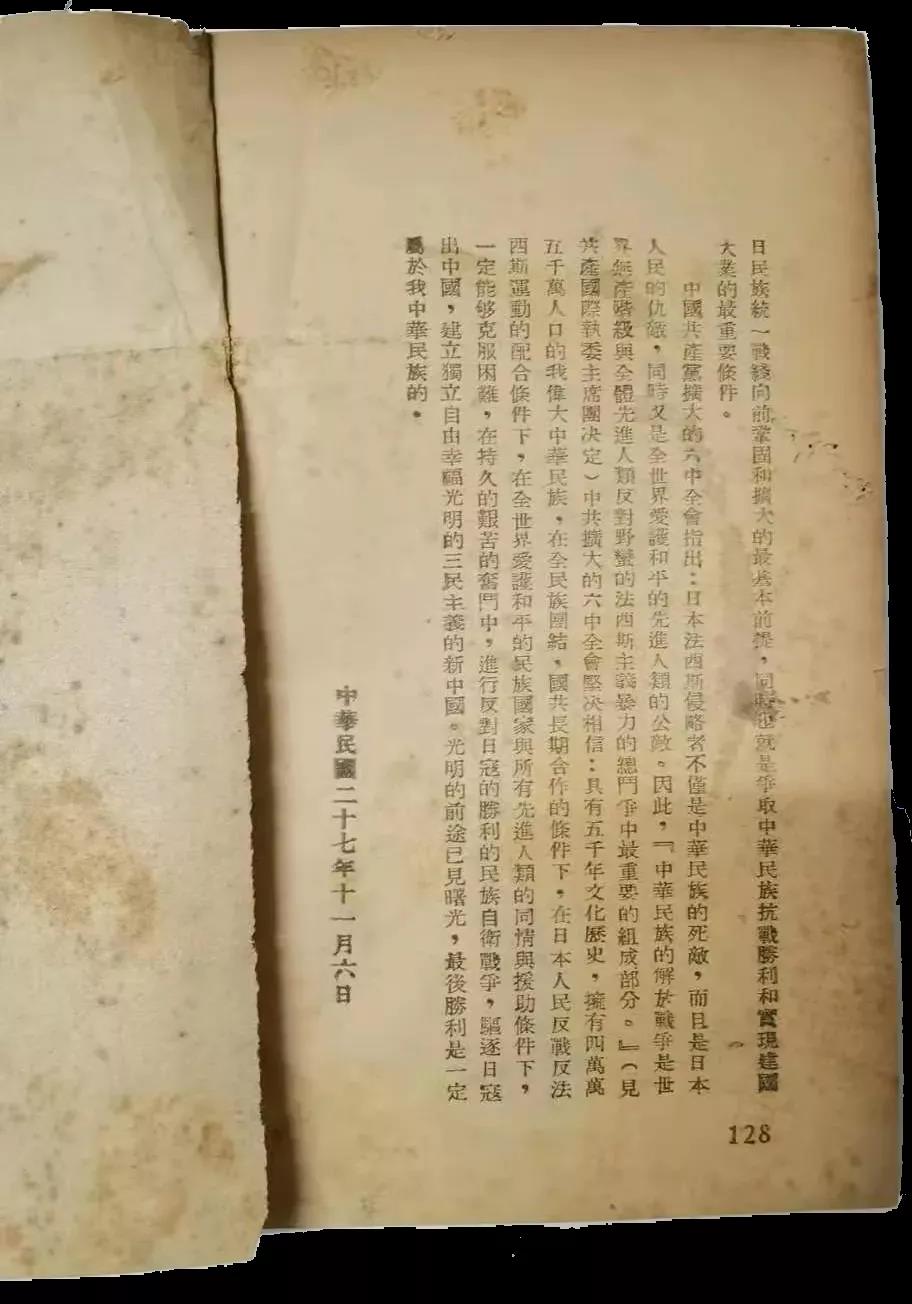 日民族統一戰綫向前鞏固和擴大的最基本前提，同時也就是爭取中華民族抗戰勝利和實現建國
大業的最重要條件。
中國共產黨擴大的六中全會指出：日本法西斯侵略者不僅是中華民族的死敵，而且是日本
人民的仇敵，同時又是全世界愛護和平的先進人類的公敵。因此，『中華民族的解放戰爭是世
界無產階級與全體先進人類反對野蠻的法西斯主義暴力的總鬥爭中最重要的組成部分。』（見
共產國際執委主席團決定）中共擴大的六中全會堅决相信：具有五千年文化歷史，擁有四萬萬
五千萬人口的我偉大中華民族，在全民族團結，國共長期合作的條件下，在日本人民反戰反法
西斯運動的配合條件下，在全世界愛護和平的民族國家與所有先進人類的同情與援助條件下，
一定能够克服困難，在持久的艱苦的奮鬥中，進行反對日寇的勝利的民族自衛戰爭，驅逐日寇
出中國，建立獨立自由幸福光明的三民主義的新中國。光明的前途已見曙光，最後勝利是一定
屬於我中華民族的．
中華民國二十七年十一月六日
128